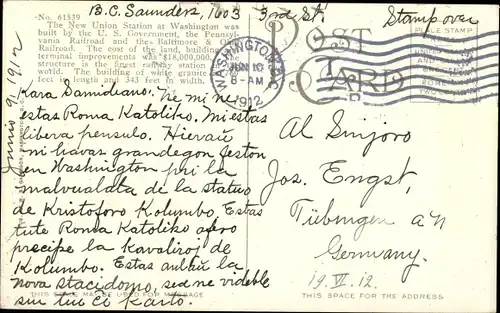 B.C. Saunders, 1603 3rd St. Stamp over
No. 61539
The New Union Station at Washington was
built by the U. S. Government, the Pennsyl-
vania Railroad and the Baltimore & O
Railroad. The cost of the land, building
terminal improvements was $18,000,000.
structure is the finest railway station
the world. The building of white granite
feet in length and 343 feet in width.
WASHINGTON, D.C.
JUN 10
8-AM
1912
POST CARD
PLACE STAMP
Junio 9, 1912
Kara Samideano: Ne mi ne
estas Roma Katoliko. Mi estas
libera pensulo. Hieraŭ
ni havas grandegon feston
en Washington pri la
malvualata de la statuo
de Kristoforo Kolumbo. Estas
tute Roma Katoliko afero
precipe la Kavaliroj de
Kolumbo. Estas ankaŭ la
nova stacidomo, sed ne videble
sur tiu ĉi karto.
Al Sinjoro
Jos. Engst,
Tübingen a/n
Germany.
19. VI. 12.
THIS SPACE MAY BE USED FOR MESSAGE
THIS SPACE FOR THE ADDRESS